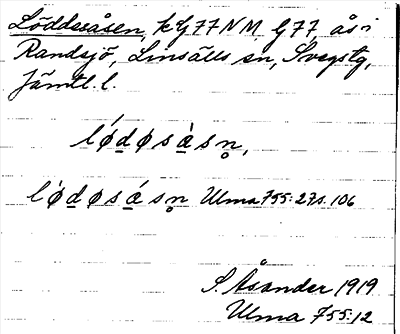 Löddesåsen, kG 77 NM. G 77, ås i
Randsjö, Linsälls sn, Svegstg,
Jämtl. l.
lǿd̲øsàsn̥,
lǿd̲øsásn̥ Ulma 755:27 s. 106
S. Åsander 1919
Ulma 755:12